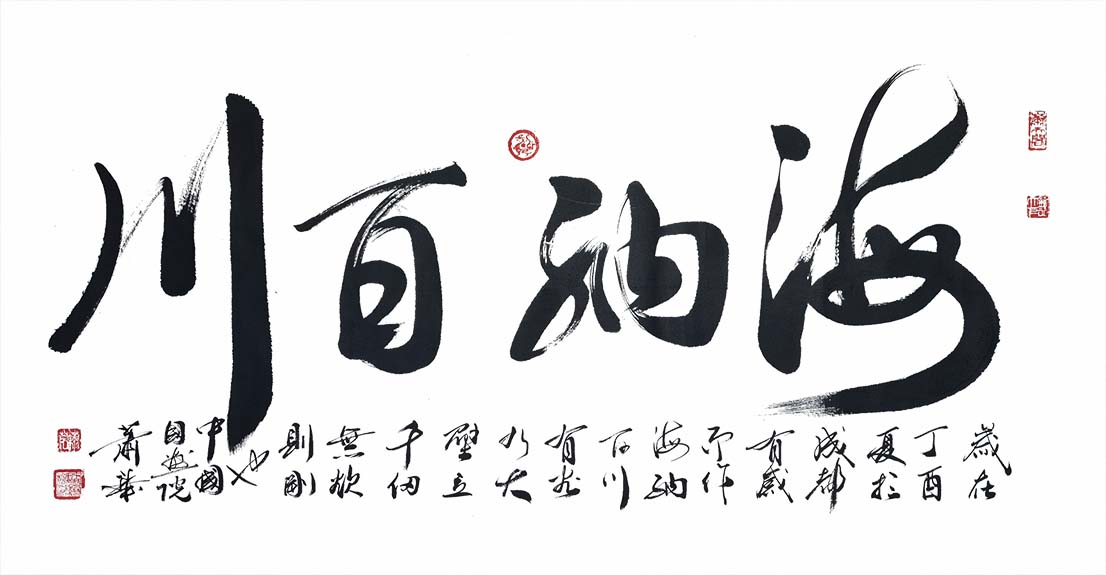 海納百川
歲在
丁酉
夏於
成都
有感
而作
海納
百川
有容
乃大
壁立
千仞
無欲
則剛
也
中國
国画院
蕭華